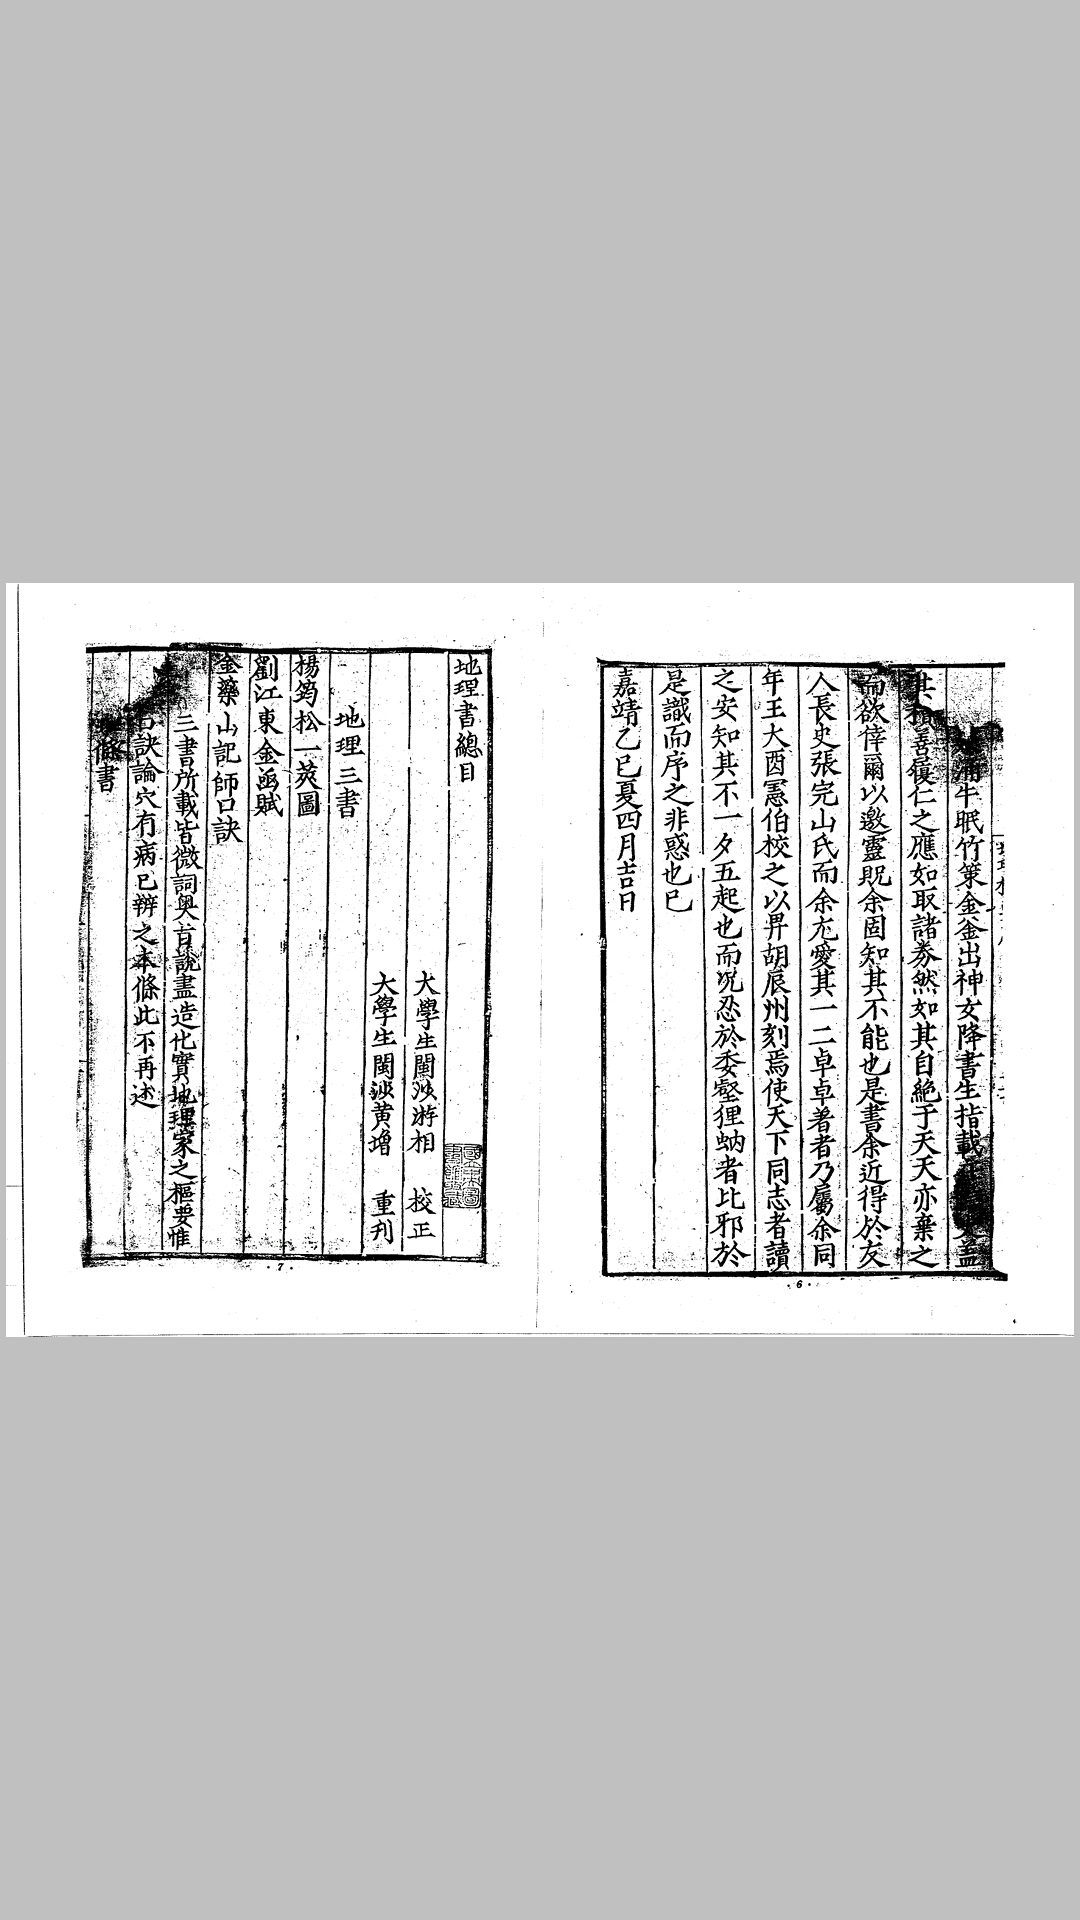 浦牛眠竹策金釜出神女降書生指載
積善履仁之應如取諸券然如其自絕于天天亦棄之
而欲倖爾以邀靈貺余固知其不能也是書余近得於友
人長史張完山氏而余尤愛其一二卓卓著者乃屬余同
年王大酉憲伯校之以畀胡辰州刻焉使天下同志者讀
之安知其不一夕五起也而况忍於委壑狸蚋者比邪於
是識而序之非惑也已
嘉靖乙巳夏四月吉日
6
地理書總目
大學生閩沙游相 校正
大學生閩沙黃增 重刊
地理三書
楊筠松一莢圖
劉江東金函賦
金藥山記師口訣
三書所載皆微詞奧旨說盡造化實地理家之樞要惟
口訣論穴有病已辨之本條此不再述
條書
7